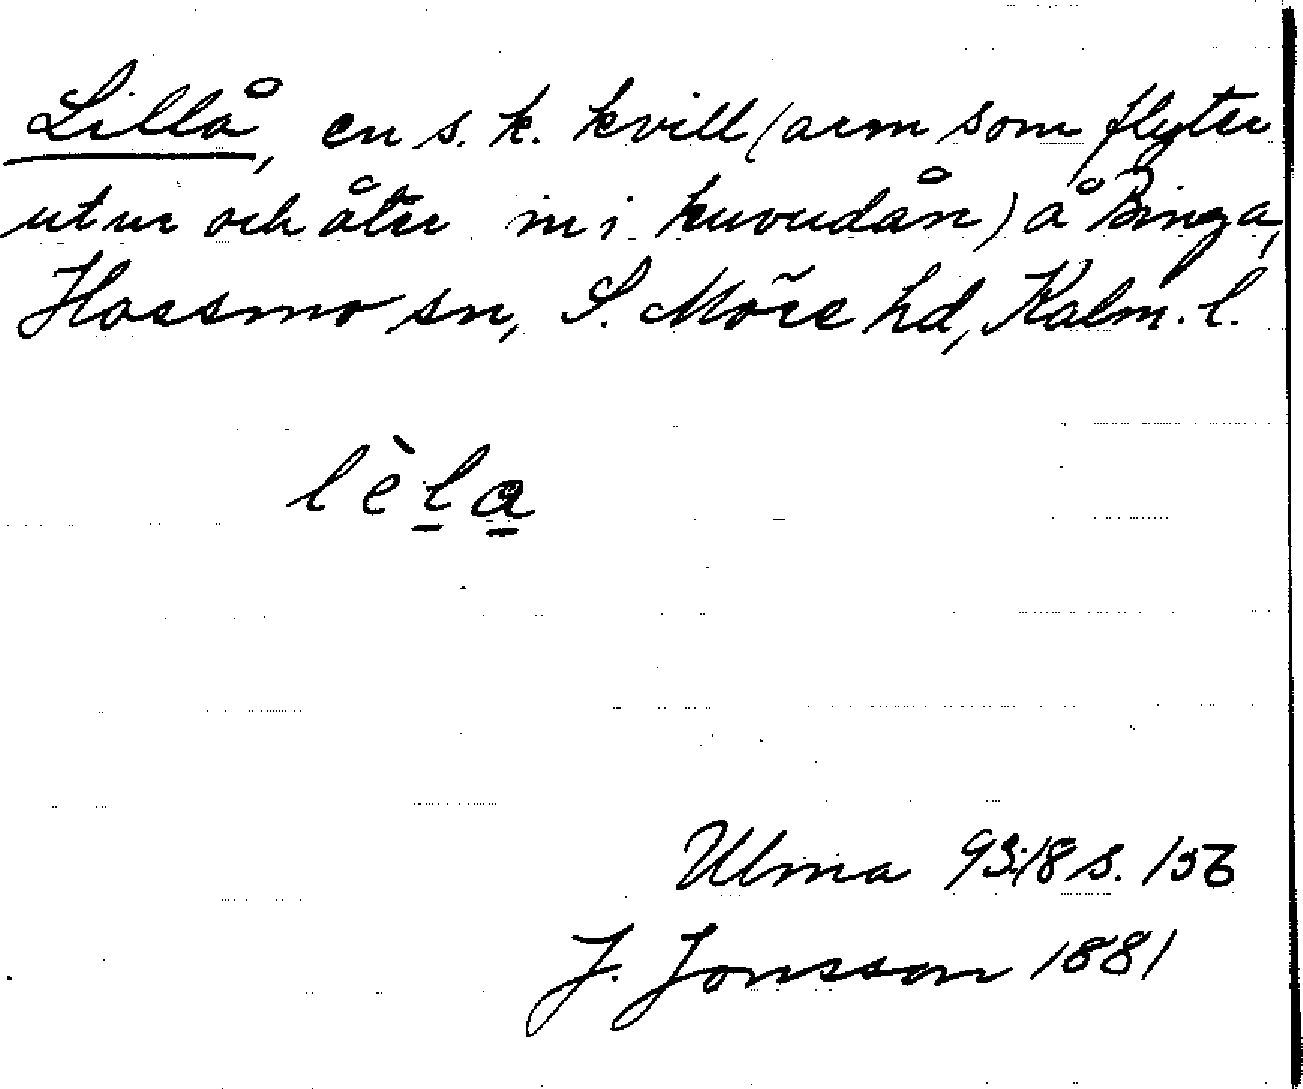 Lillå, en s. k. kvill (arm som flyter
ut ur och åter in i huvudån) å Binga,
Hossmo sn, S. Möre hd, Kalm. l.
lèla
Ulma 93:18 s. 156
J. Jonsson 1881